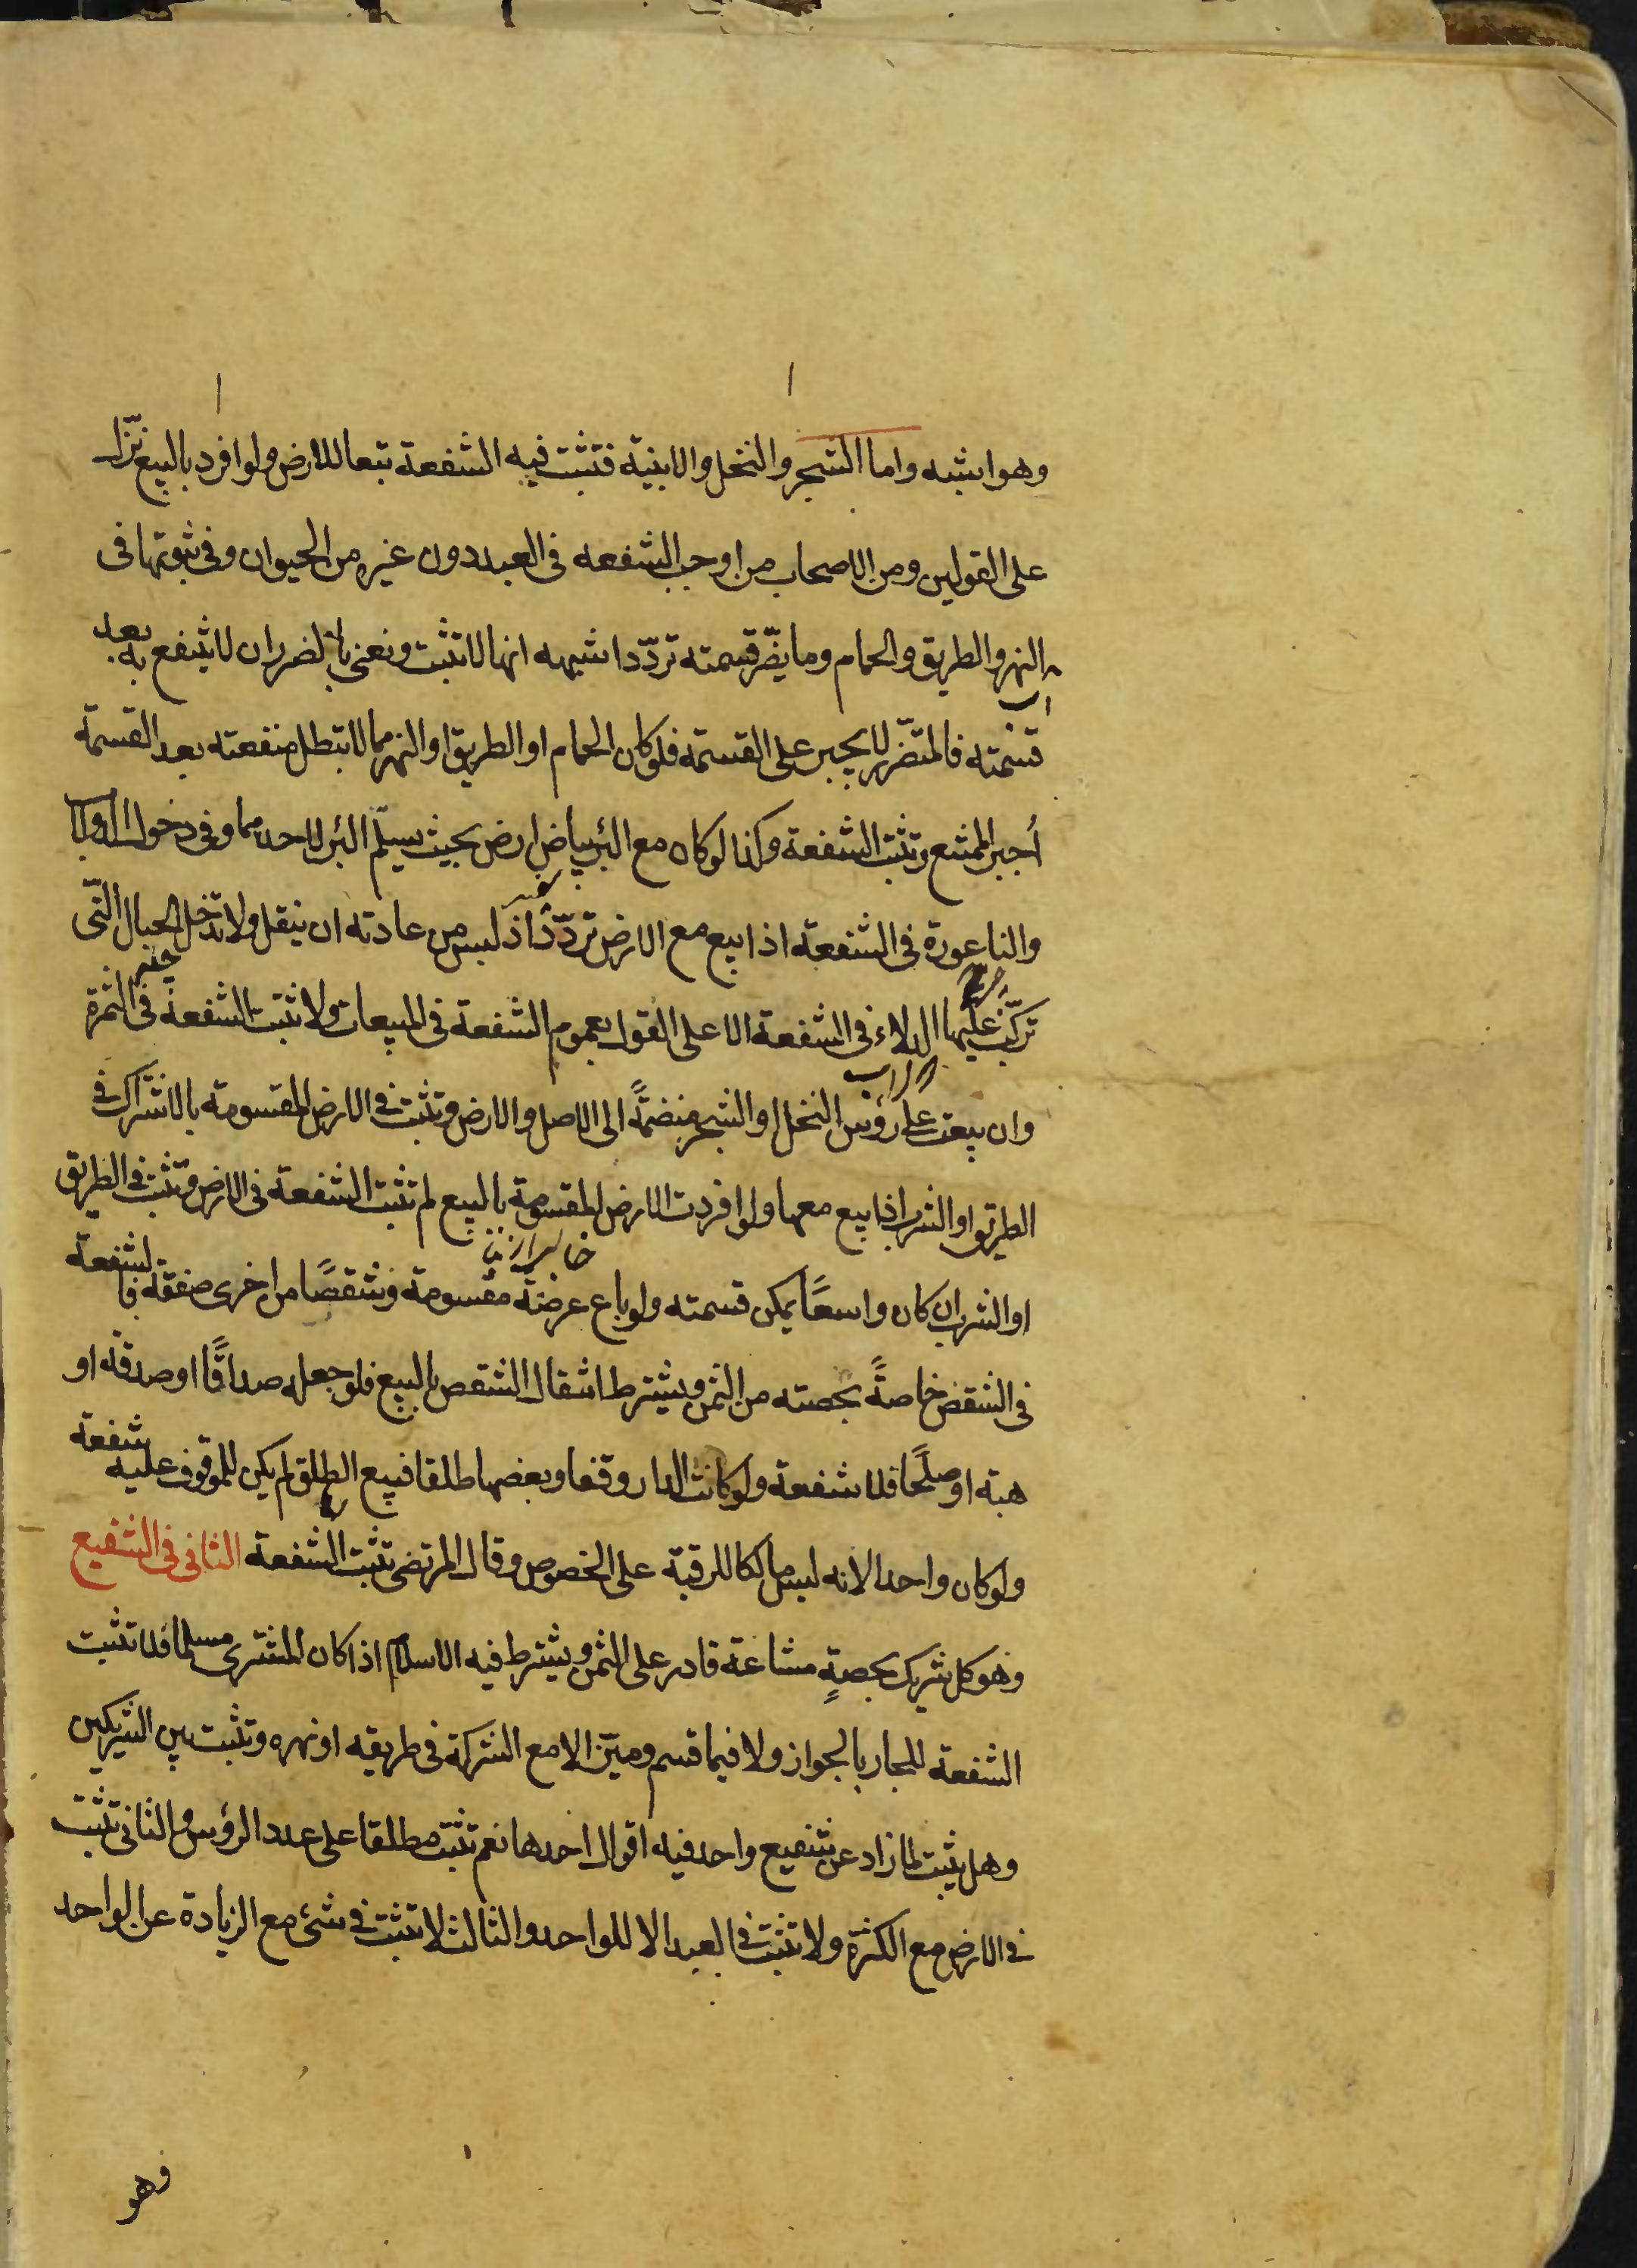 وهو اشبه واما الشجر والنخل والابنية فتثبت فيه الشفعة تبعا للارض ولو افرد بالبيع نزّل
على القولين ومن الاصحاب من اوجب الشفعه فى العبد دون غيره من الحيوان وفى ثبوتها فى
النهر والطريق والحمام وما يضّر قسمته تردّد اشبهه انها لا تثبت ونعنى بالضرر ان لا ينتفع به بعد
قسمته فالمتضّرر لا يجبر على القسمة فلو كان الحمام او الطريق او النهر مما لا تبطل منفعته بعد القسمة
اُجبر الممتنع وتثبت الشفعة وكذا لو كان مع البئر بياض ارض بحيث يسلّم البئر لاحدهما وفى دخول الدولاب
والناعورة فى الشفعة اذا بيع مع الارض تردّد اذ ليس من عادته ان ينقل ولا تدخل الحبال التّى
تركّب عليها الدلاء فى الشفعة الا على القول بعموم الشفعة فى المبيعات ولا تثبت الشفعة فى الثمرة
وان بيعت على رؤس النخل او الشجر منضمّةً الى الاصل والارض وتثبت فى الارض المقسومة بالاشتراك فى
الطريق او الشرب اذا بيع معها ولو افردت الارض المقسومة بالبيع لم تثبت الشفعة فى الارض وتثبت فى الطريق
او الشرب ان كان واسعًا يمكن قسمته ولو باع عرضة مقسومة وشقصًا من اخرى صفقة فالشفعة
فى الشقص خاصةً بحصته من الثمن ويشترط انتقال الشقص بالبيع فلو جعله صداقًا او صدقه او
هبة او صلحًا فلا شفعة ولو كانت الدار وقفا وبعضها طلقا فبيع الطلق لم يكن للموقوف عليه شفعة
ولو كان واحدا لانه ليس مالكا للرقبة على الخصوص وقال المرتضى تثبت الشفعة الثانى فى الشفيع
وهو كل شريك بحصةٍ مشاعة قادر على الثمن ويشترط فيه الاسلام اذا كان المشترى مسلما فلا تثبت
الشفعة للجار بالجواز ولا فيما قسم وميّز الا مع الشركة فى طريقه او نهره وتثبت بين الشريكين
وهل يثبت لما زاد عن شفيع واحد فيه اقوال احدها نعم تثبت مطلقا على عدد الرؤس والثانى تثبت
فى الارض مع الكثرة ولا تثبت فى العبد الا للواحد والثالث لا تثبت فى شئ مع الزيادة عن الواحد
وهو